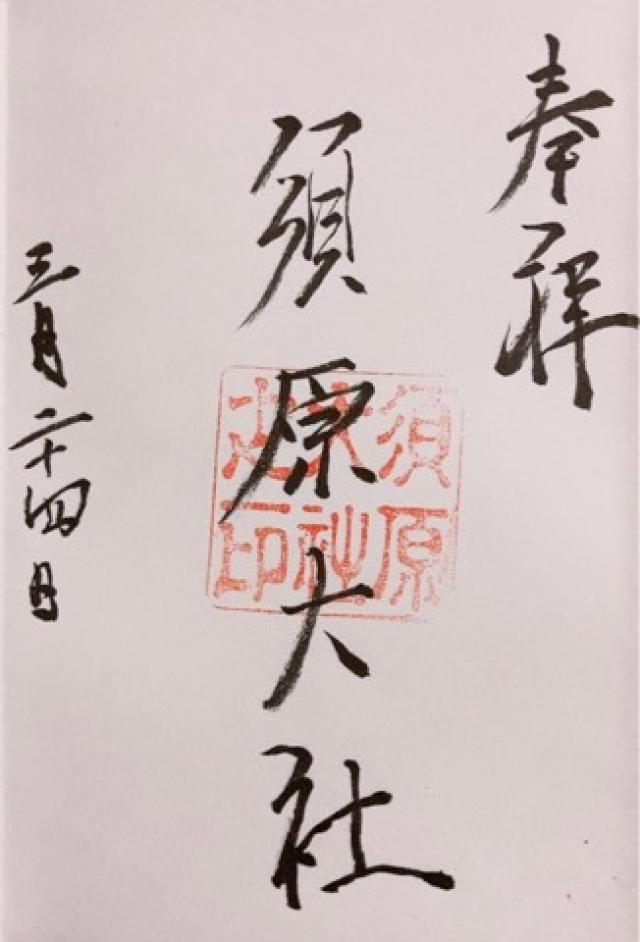 奉拝
須原大社
須原
大社
之印
三月二十四日